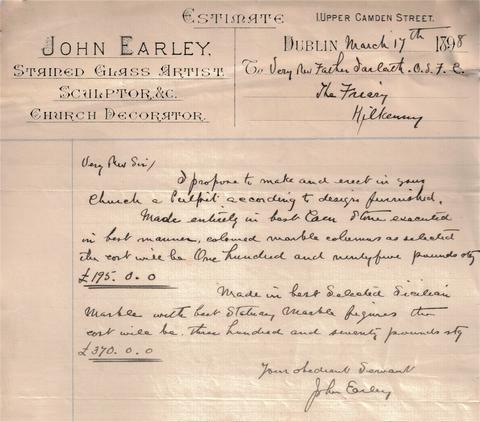 Estimate
1. Upper Camden Street.
John Earley.
Stained Glass Artist.
Sculptor, &c.
Church Decorator.
Dublin, March 17th 1898
To Very Rev Father Jarlath. O.S.F.C.
The Friary
Kilkenny
Very Rev Sir/
I propose to make and erect in your
Church a Pulpit according to designs furnished.
Made entirely in best Caen Stone executed
in best manner, colored marble columns as selected
the cost will be One hundred and ninety five pounds stg
£195. 0. 0
Made in best Selected Sicilian
Marble with best Statuary Marble figures the
cost will be three hundred and seventy pounds stg
£370. 0. 0
Your obedient Servant
John Earley